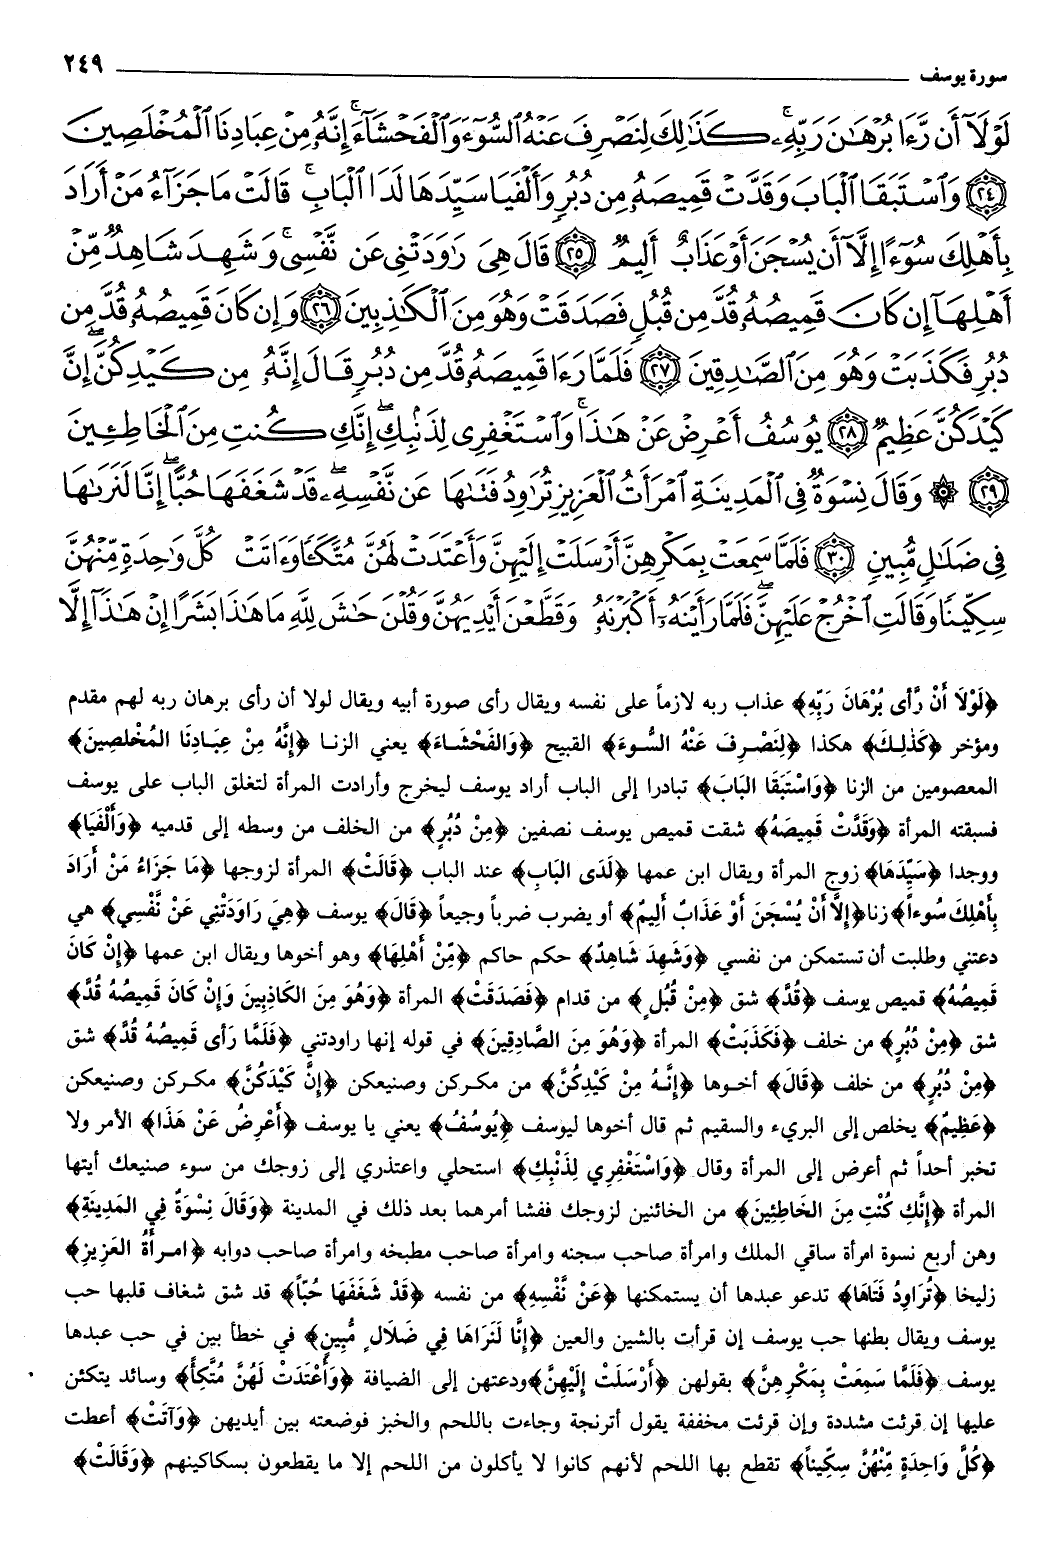 سورة يوسف ٢٤٩
لَوْلَآ أَن رَّءَا بُرْهَٰنَ رَبِّهِۦ ۚ كَذَٰلِكَ لِنَصْرِفَ عَنْهُ ٱلسُّوٓءَ وَٱلْفَحْشَآءَ ۚ إِنَّهُۥ مِنْ عِبَادِنَا ٱلْمُخْلَصِينَ
﴿٢٤﴾ وَٱسْتَبَقَا ٱلْبَابَ وَقَدَّتْ قَمِيصَهُۥ مِن دُبُرٍ وَأَلْفَيَا سَيِّدَهَا لَدَا ٱلْبَابِ ۚ قَالَتْ مَا جَزَآءُ مَنْ أَرَادَ
بِأَهْلِكَ سُوٓءًا إِلَّآ أَن يُسْجَنَ أَوْ عَذَابٌ أَلِيمٌ ﴿٢٥﴾ قَالَ هِىَ رَٰوَدَتْنِى عَن نَّفْسِى ۚ وَشَهِدَ شَاهِدٌ مِّنْ
أَهْلِهَآ إِن كَانَ قَمِيصُهُۥ قُدَّ مِن قُبُلٍ فَصَدَقَتْ وَهُوَ مِنَ ٱلْكَٰذِبِينَ ﴿٢٦﴾ وَإِن كَانَ قَمِيصُهُۥ قُدَّ مِن
دُبُرٍ فَكَذَبَتْ وَهُوَ مِنَ ٱلصَّٰدِقِينَ ﴿٢٧﴾ فَلَمَّا رَءَا قَمِيصَهُۥ قُدَّ مِن دُبُرٍ قَالَ إِنَّهُۥ مِن كَيْدِكُنَّ ۖ إِنَّ
كَيْدَكُنَّ عَظِيمٌ ﴿٢٨﴾ يُوسُفُ أَعْرِضْ عَنْ هَٰذَا ۚ وَٱسْتَغْفِرِى لِذَنۢبِكِ ۖ إِنَّكِ كُنتِ مِنَ ٱلْخَاطِـِٔينَ
﴿٢٩﴾ ۞ وَقَالَ نِسْوَةٌ فِى ٱلْمَدِينَةِ ٱمْرَأَتُ ٱلْعَزِيزِ تُرَٰوِدُ فَتَىٰهَا عَن نَّفْسِهِۦ ۖ قَدْ شَغَفَهَا حُبًّا ۖ إِنَّا لَنَرَىٰهَا
فِى ضَلَٰلٍ مُّبِينٍ ﴿٣٠﴾ فَلَمَّا سَمِعَتْ بِمَكْرِهِنَّ أَرْسَلَتْ إِلَيْهِنَّ وَأَعْتَدَتْ لَهُنَّ مُتَّكَـًٔا وَءَاتَتْ كُلَّ وَٰحِدَةٍ مِّنْهُنَّ
سِكِّينًا وَقَالَتِ ٱخْرُجْ عَلَيْهِنَّ ۖ فَلَمَّا رَأَيْنَهُۥٓ أَكْبَرْنَهُۥ وَقَطَّعْنَ أَيْدِيَهُنَّ وَقُلْنَ حَٰشَ لِلَّهِ مَا هَٰذَا بَشَرًا إِنْ هَٰذَآ إِلَّا
﴿لَوْلَا أَنْ رَّأى بُرْهَانَ رَبِّهِ﴾ عذاب ربه لازماً على نفسه ويقال رأى صورة أبيه ويقال لولا أن رأى برهان ربه لهم مقدم
ومؤخر ﴿كَذٰلِكَ﴾ هكذا ﴿لِنَصْرِفَ عَنْهُ السُّوءَ﴾ القبيح ﴿وَالفَحْشَاءَ﴾ يعني الزنا ﴿إِنَّهُ مِنْ عِبَادِنَا المُخْلصِينَ﴾
المعصومين من الزنا ﴿وَاسْتَبَقَا البَابَ﴾ تبادرا إلى الباب أراد يوسف ليخرج وأرادت المرأة لتغلق الباب على يوسف
فسبقته المرأة ﴿وَقَدَّتْ قَمِيصَهُ﴾ شقت قميص يوسف نصفين ﴿مِنْ دُبُرٍ﴾ من الخلف من وسطه إلى قدميه ﴿وَأَلْفَيَا﴾
ووجدا ﴿سَيِّدَهَا﴾ زوج المرأة ويقال ابن عمها ﴿لَدَى البَابِ﴾ عند الباب ﴿قَالَتْ﴾ المرأة لزوجها ﴿مَا جَزَاءُ مَنْ أَرَادَ
بِأَهْلِكَ سُوءاً﴾ زنا ﴿إِلاَّ أَنْ يُسْجَنَ أَوْ عَذَابٌ أَلِيمٌ﴾ أو يضرب ضرباً وجيعاً ﴿قَالَ﴾ يوسف ﴿هِيَ رَاوَدَتْنِي عَنْ نَّفْسِي﴾ هي
دعتني وطلبت أن تستمكن من نفسي ﴿وَشَهِدَ شَاهِدٌ﴾ حكم حاكم ﴿مِّنْ أَهْلِهَا﴾ وهو أخوها ويقال ابن عمها ﴿إِنْ كَانَ
قَمِيصُهُ﴾ قميص يوسف ﴿قُدَّ﴾ شق ﴿مِنْ قُبُلٍ﴾ من قدام ﴿فَصَدَقَتْ﴾ المرأة ﴿وَهُوَ مِنَ الكَاذِبِينَ وَإِنْ كَانَ قَمِيصُهُ قُدَّ﴾
شق ﴿مِنْ دُبُرٍ﴾ من خلف ﴿فَكَذَبَتْ﴾ المرأة ﴿وَهُوَ مِنَ الصَّادِقِينَ﴾ في قوله إنها راودتني ﴿فَلَمَّا رَأى قَمِيصَهُ قُدَّ﴾ شق
﴿مِنْ دُبُرٍ﴾ من خلف ﴿قَالَ﴾ أخوها ﴿إِنَّهُ مِنْ كَيْدِكُنَّ﴾ من مكركن وصنيعكن ﴿إِنَّ كَيْدَكُنَّ﴾ مكركن وصنيعكن
﴿عَظِيمٌ﴾ يخلص إلى البريء والسقيم ثم قال أخوها ليوسف ﴿يُوسُفُ﴾ يعني يا يوسف ﴿أَعْرِضْ عَنْ هَذَا﴾ الأمر ولا
تخبر أحداً ثم أعرض إلى المرأة وقال ﴿وَاسْتَغْفِرِي لِذَنْبِكِ﴾ استحلي واعتذري إلى زوجك من سوء صنيعك أيتها
المرأة ﴿إِنَّكِ كُنْتِ مِنَ الخَاطِئِينَ﴾ من الخائنين لزوجك ففشا أمرهما بعد ذلك في المدينة ﴿وَقَالَ نِسْوَةٌ فِي المَدِينَةِ﴾
وهن أربع نسوة امرأة ساقي الملك وامرأة صاحب سجنه وامرأة صاحب مطبخه وامرأة صاحب دوابه ﴿امرأةُ العَزِيزِ﴾
زليخا ﴿تُرَاوِدُ فَتَاهَا﴾ تدعو عبدها أن يستمكنها ﴿عَنْ نَّفْسِهِ﴾ من نفسه ﴿قَدْ شَغَفَهَا حُبّاً﴾ قد شق شغاف قلبها حب
يوسف ويقال بطنها حب يوسف إن قرأت بالشين والعين ﴿إِنَّا لَنَرَاهَا فِي ضَلَالٍ مُّبِينٍ﴾ في خطأ بين في حب عبدها
يوسف ﴿فَلَمَّا سَمِعَتْ بِمَكْرِهِنَّ﴾ بقولهن ﴿أَرْسَلَتْ إِلَيْهِنَّ﴾ ودعتهن إلى الضيافة ﴿وَأَعْتَدَتْ لَهُنَّ مُتَّكِأً﴾ وسائد يتكئن
عليها إن قرئت مشددة وإن قرئت مخففة يقول أترنجة وجاءت باللحم والخبز فوضعته بين أيديهن ﴿وَآتَتْ﴾ أعطت
﴿كُلَّ وَاحِدَةٍ مِّنْهُنَّ سِكِّيناً﴾ تقطع بها اللحم لأنهم كانوا لا يأكلون من اللحم إلا ما يقطعون بسكاكينهم ﴿وَقَالَتْ﴾